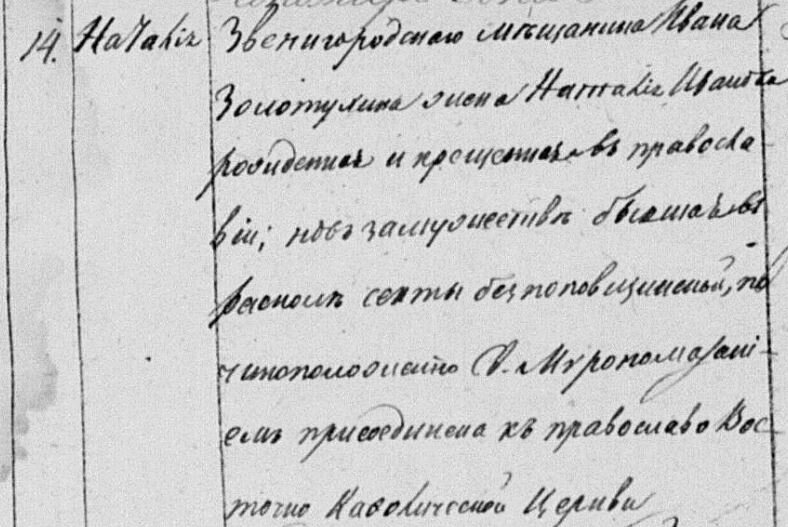 14. Наталія Звенигородскаго мѣщанина Ивана
Золотухина жена Наталія Иванова
рожденная и крещенная въ правосла-
віи; но въ замужествѣ бывшая въ
расколѣ секты безпоповщинской, по
чиноположенію С. Мѵропомазані-
емъ присоединена къ православно Вос-
точно Каѳолической Церкви